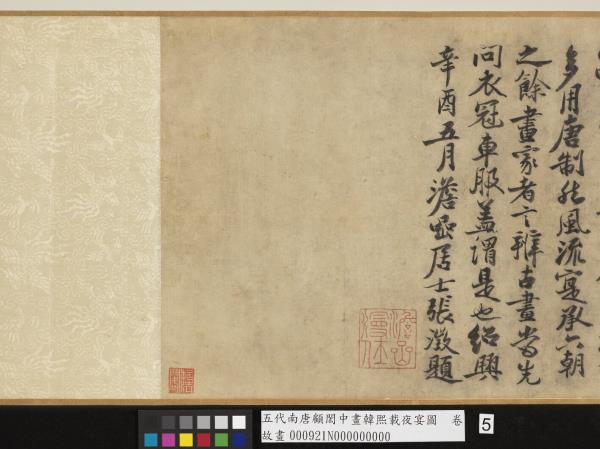 多用唐制然風流寔承六朝
之餘畫家者言辨古畫當先
問衣冠車服蓋謂是也紹興
辛酉五月澹嵒居士張澂題
五代南唐顧閎中畫韓熙載夜宴圖 卷
故畫 000921N000000000
5